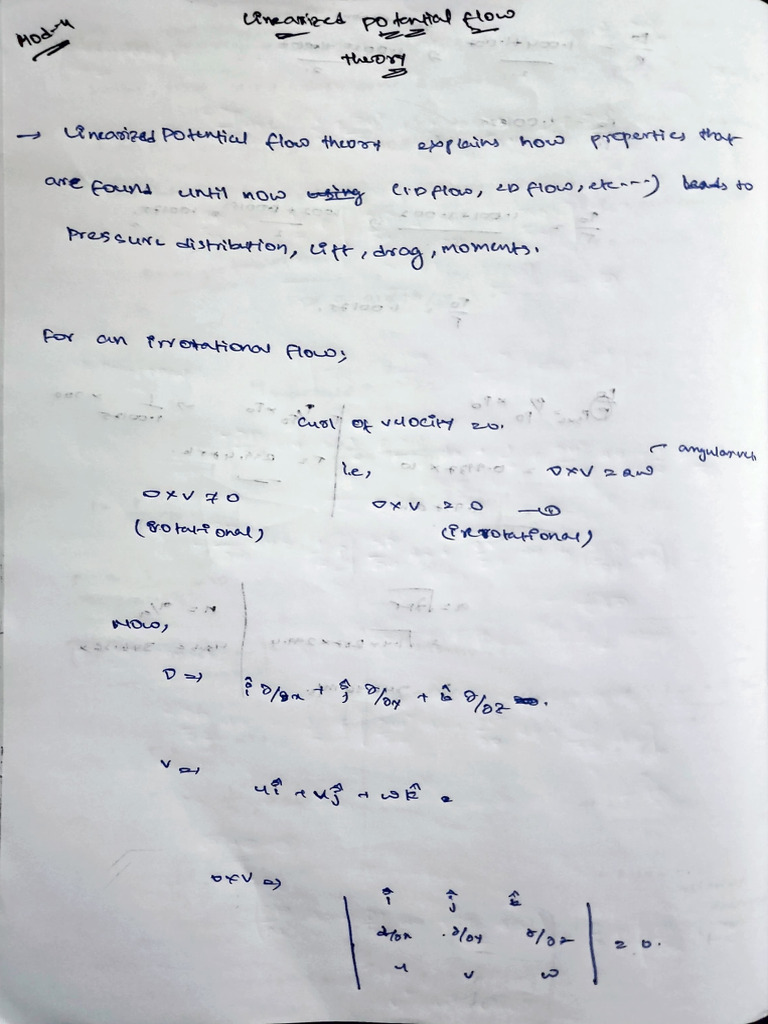 Mod-4
Linearized potential flow
theory
→ Linearized Potential flow theory explains how properties that
are found until now using (1D flow, 2D flow, etc----) leads to
Pressure distribution, lift, drag, moments.
For an irrotational flow;
Curl of velocity = 0.
i.e, ∇×V = 2ω
∇×V ≠ 0 ∇×V = 0 —①
(rotational) (irrotational)
Now,
∇ ⇒ î ∂/∂x + ĵ ∂/∂y + k̂ ∂/∂z .
V ⇒ uî + vĵ + wk̂
∇×V ⇒
î ĵ k̂
∂/∂x ∂/∂y ∂/∂z = 0.
u v w